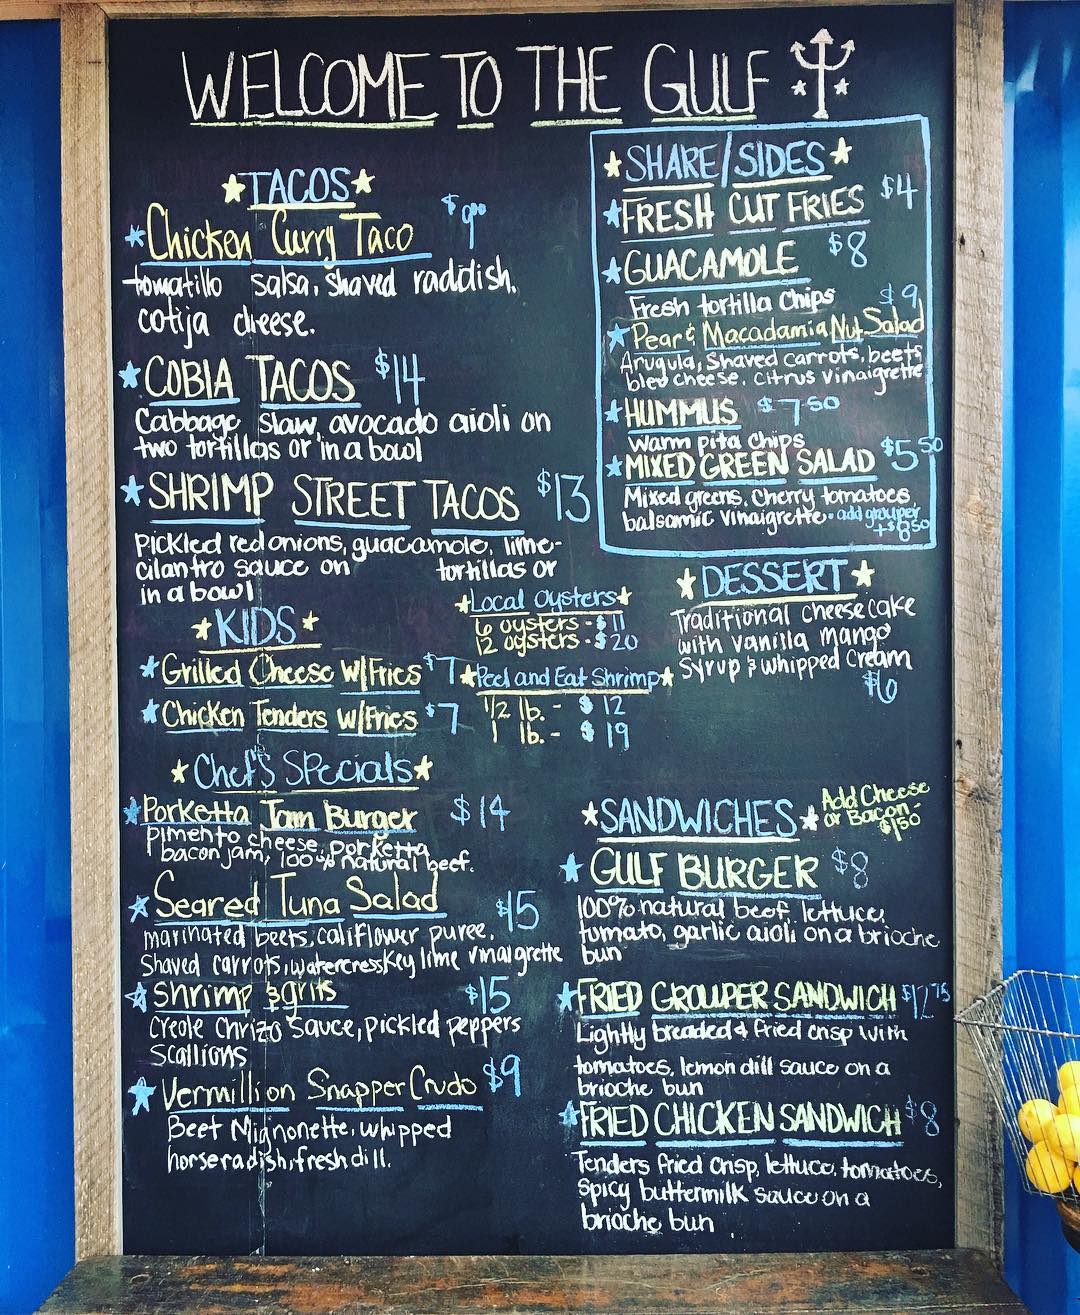 WELCOME TO THE GULF
TACOS
Chicken Curry Taco $9.00
tomatillo salsa, shaved raddish,
cotija cheese.
COBIA TACOS $14
Cabbage slaw, avocado aioli on
two tortillas or in a bowl
SHRIMP STREET TACOS $13
pickled red onions, guacamole, lime-
cilantro sauce on tortillas or
in a bowl
KIDS
Grilled Cheese W/Fries $7
Chicken Tenders W/Fries $7
Local Oysters
6 oysters - $11
12 oysters - $20
Peel and Eat Shrimp
1/2 lb. - $12
1 lb. - $19
Chef's Specials
Porketta Jam Burger $14
pimento cheese, porketta
bacon jam, 100% natural beef.
Seared Tuna Salad $15
marinated beets, califlower puree,
Shaved carrots, watercress key lime vinaigrette
shrimp & grits $15
Creole Chrizo Sauce, pickled peppers
Scallions
Vermillion Snapper Crudo $9
Beet Mignonette, whipped
horseradish, fresh dill.
SHARE/SIDES
FRESH CUT FRIES $4
GUACAMOLE $8
Fresh tortilla chips
Pear & Macadamia Nut Salad $9
Arugula, Shaved carrots, beets
bleu cheese, citrus vinaigrette
HUMMUS $7.50
warm pita chips
MIXED GREEN SALAD $5.50
Mixed greens, cherry tomatoes,
balsamic vinaigrette - add grouper
+$8.50
DESSERT
Traditional cheesecake
with vanilla mango
syrup & whipped cream
$6
SANDWICHES
Add Cheese
or Bacon -
$1.50
GULF BURGER $8
100% natural beef, lettuce,
tomato, garlic aioli on a brioche
bun
FRIED GROUPER SANDWICH $12.75
Lightly breaded & fried crisp with
tomatoes, lemon dill sauce on a
brioche bun
FRIED CHICKEN SANDWICH $8
Tenders fried crisp, lettuce, tomatoes,
spicy buttermilk sauce on a
brioche bun